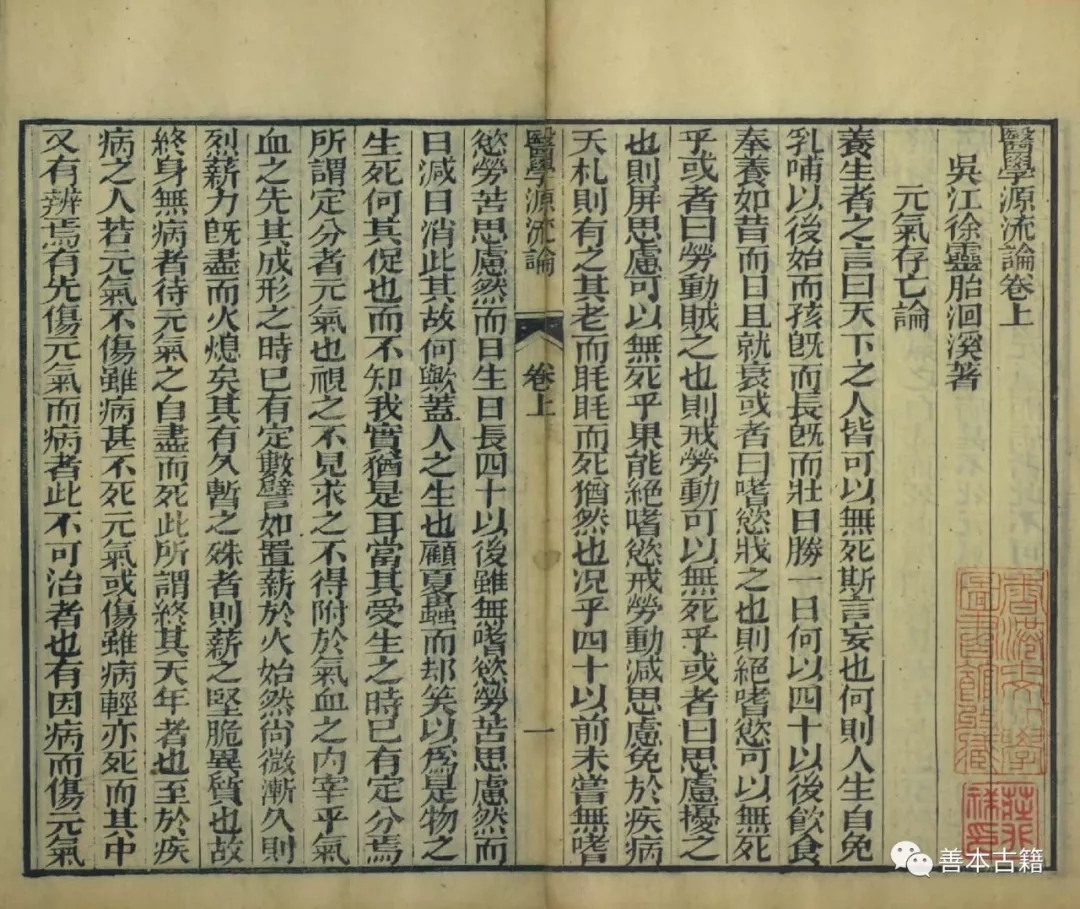 醫學源流論卷上
吳江徐靈胎洄溪著
元氣存亡論
養生者之言曰天下之人皆可以無死斯言妄也何則人生自免
乳哺以後始而孩旣而長旣而壯日勝一日何以四十以後飮食
奉養如昔而日且就衰或者曰嗜慾戕之也則絕嗜慾可以無死
乎或者曰勞動賊之也則戒勞動可以無死乎或者曰思慮擾之
也則屏思慮可以無死乎果能絕嗜慾戒勞動減思慮免於疾病
夭札則有之其老而眊眊而死猶然也况乎四十以前未嘗無嗜
醫學源流論 卷上 一
慾勞苦思慮然而日生日長四十以後雖無嗜慾勞苦思慮然而
日減日消此其故何歟蓋人之生也顧夏蟲而却笑以爲是物之
生死何其促也而不知我實猶是耳當其受生之時已有定分焉
所謂定分者元氣也視之不見求之不得附於氣血之內宰乎氣
血之先其成形之時已有定數譬如置薪於火始然尙微漸久則
烈薪力旣盡而火熄矣其有久暫之殊者則薪之堅脆異質也故
終身無病者待元氣之自盡而死此所謂終其天年者也至於疾
病之人若元氣不傷雖病甚不死元氣或傷雖病輕亦死而其中
又有辨焉有先傷元氣而病者此不可治者也有因病而傷元氣
善本古籍